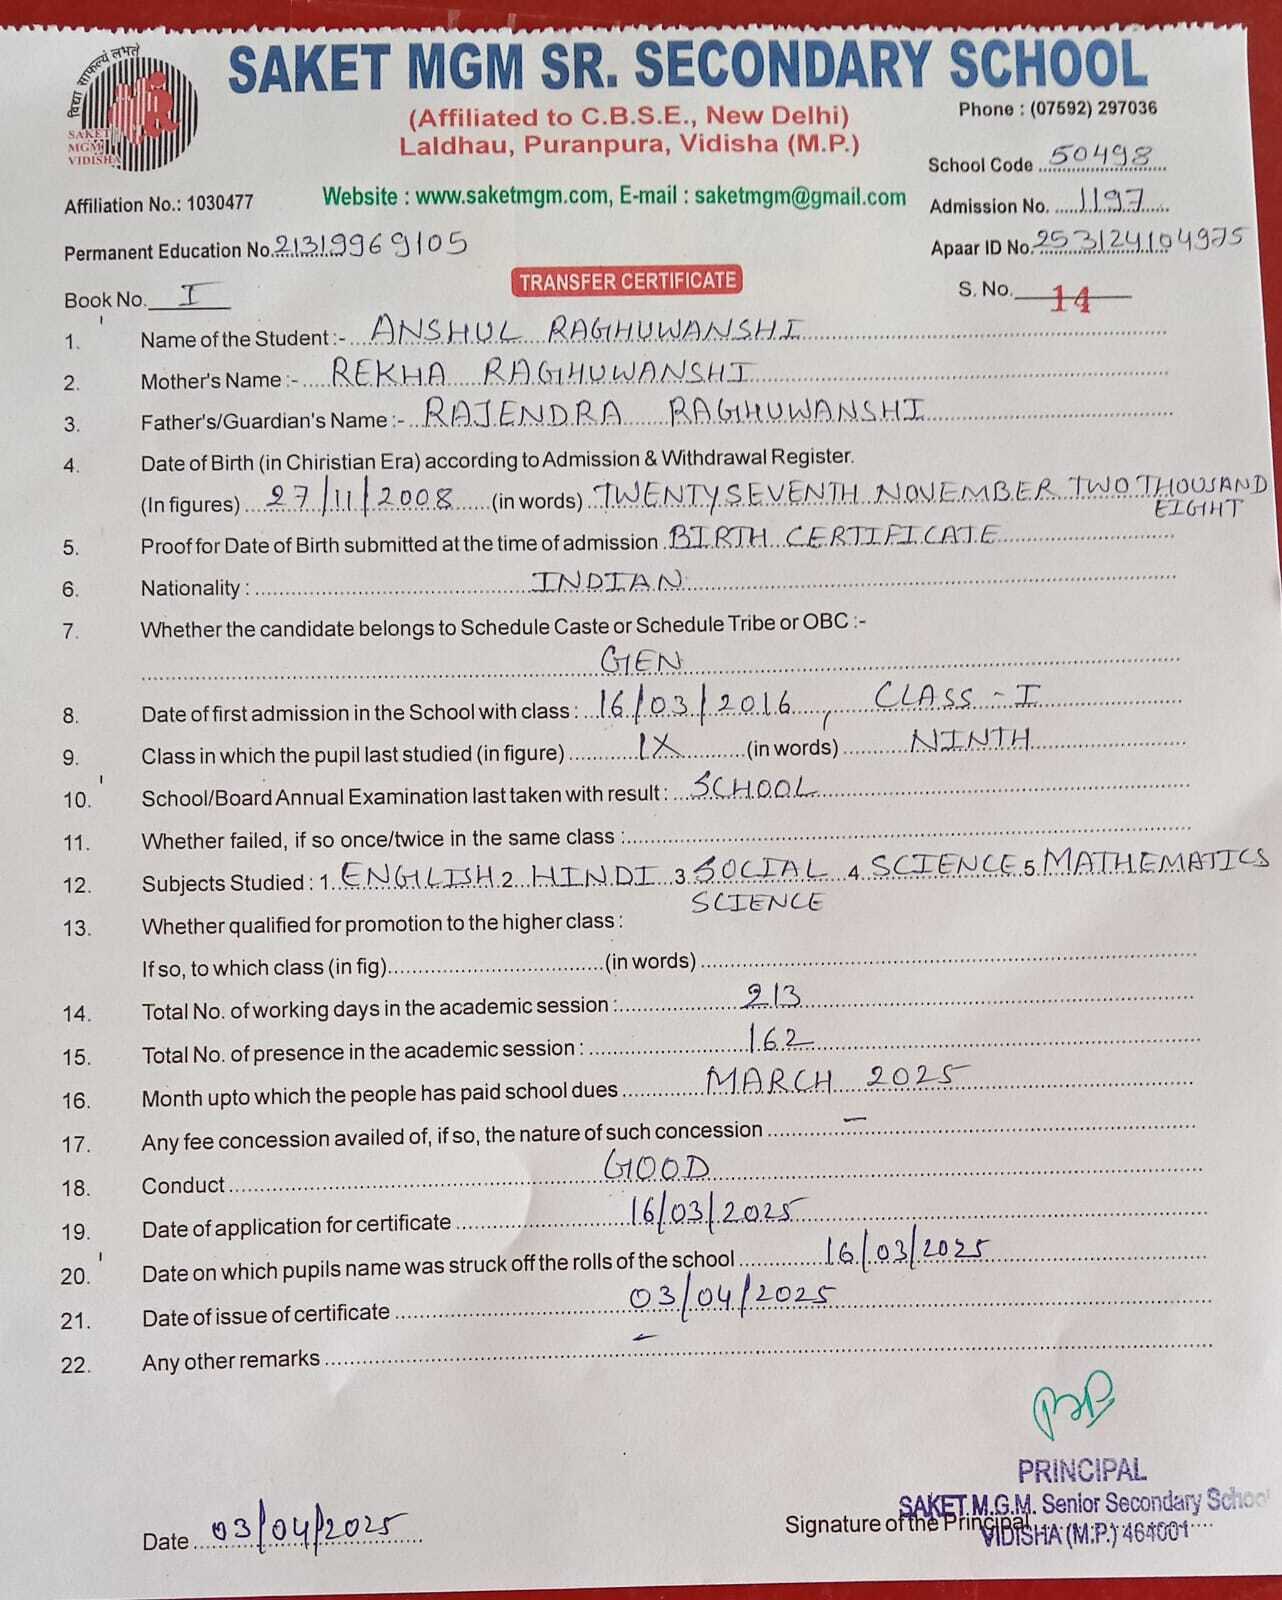 विद्या साफल्यं लभते
SAKET
MGM
VIDISHA
SAKET MGM SR. SECONDARY SCHOOL
(Affiliated to C.B.S.E., New Delhi)
Phone : (07592) 297036
Laldhau, Puranpura, Vidisha (M.P.)
School Code 50498
Affiliation No.: 1030477
Website : www.saketmgm.com, E-mail : saketmgm@gmail.com
Admission No. 1197
Permanent Education No. 21319969105
Apaar ID No. 253124104975
TRANSFER CERTIFICATE
Book No. I
S. No. 14
1. Name of the Student :- ANSHUL RAGHUWANSHI
2. Mother's Name :- REKHA RAGHUWANSHI
3. Father's/Guardian's Name :- RAJENDRA RAGHUWANSHI
4. Date of Birth (in Chiristian Era) according to Admission & Withdrawal Register.
(In figures) 27/11/2008 (in words) TWENTY SEVENTH NOVEMBER TWO THOUSAND
EIGHT
5. Proof for Date of Birth submitted at the time of admission BIRTH CERTIFICATE
6. Nationality : INDIAN
7. Whether the candidate belongs to Schedule Caste or Schedule Tribe or OBC :-
GEN
8. Date of first admission in the School with class : 16/03/2016, CLASS - I
9. Class in which the pupil last studied (in figure) IX (in words) NINTH
10. School/Board Annual Examination last taken with result : SCHOOL
11. Whether failed, if so once/twice in the same class :
12. Subjects Studied : 1. ENGLISH 2. HINDI 3 SOCIAL 4. SCIENCE 5. MATHEMATICS
SCIENCE
13. Whether qualified for promotion to the higher class :
If so, to which class (in fig) (in words)
14. Total No. of working days in the academic session : 213
15. Total No. of presence in the academic session : 162
16. Month upto which the people has paid school dues MARCH 2025
17. Any fee concession availed of, if so, the nature of such concession –
18. Conduct GOOD
19. Date of application for certificate 16/03/2025
20. Date on which pupils name was struck off the rolls of the school 16/03/2025
21. Date of issue of certificate 03/04/2025
22. Any other remarks –
PRINCIPAL
SAKET M.G.M. Senior Secondary School
Signature of the Principal
VIDISHA (M.P.) 464001
Date 03/04/2025